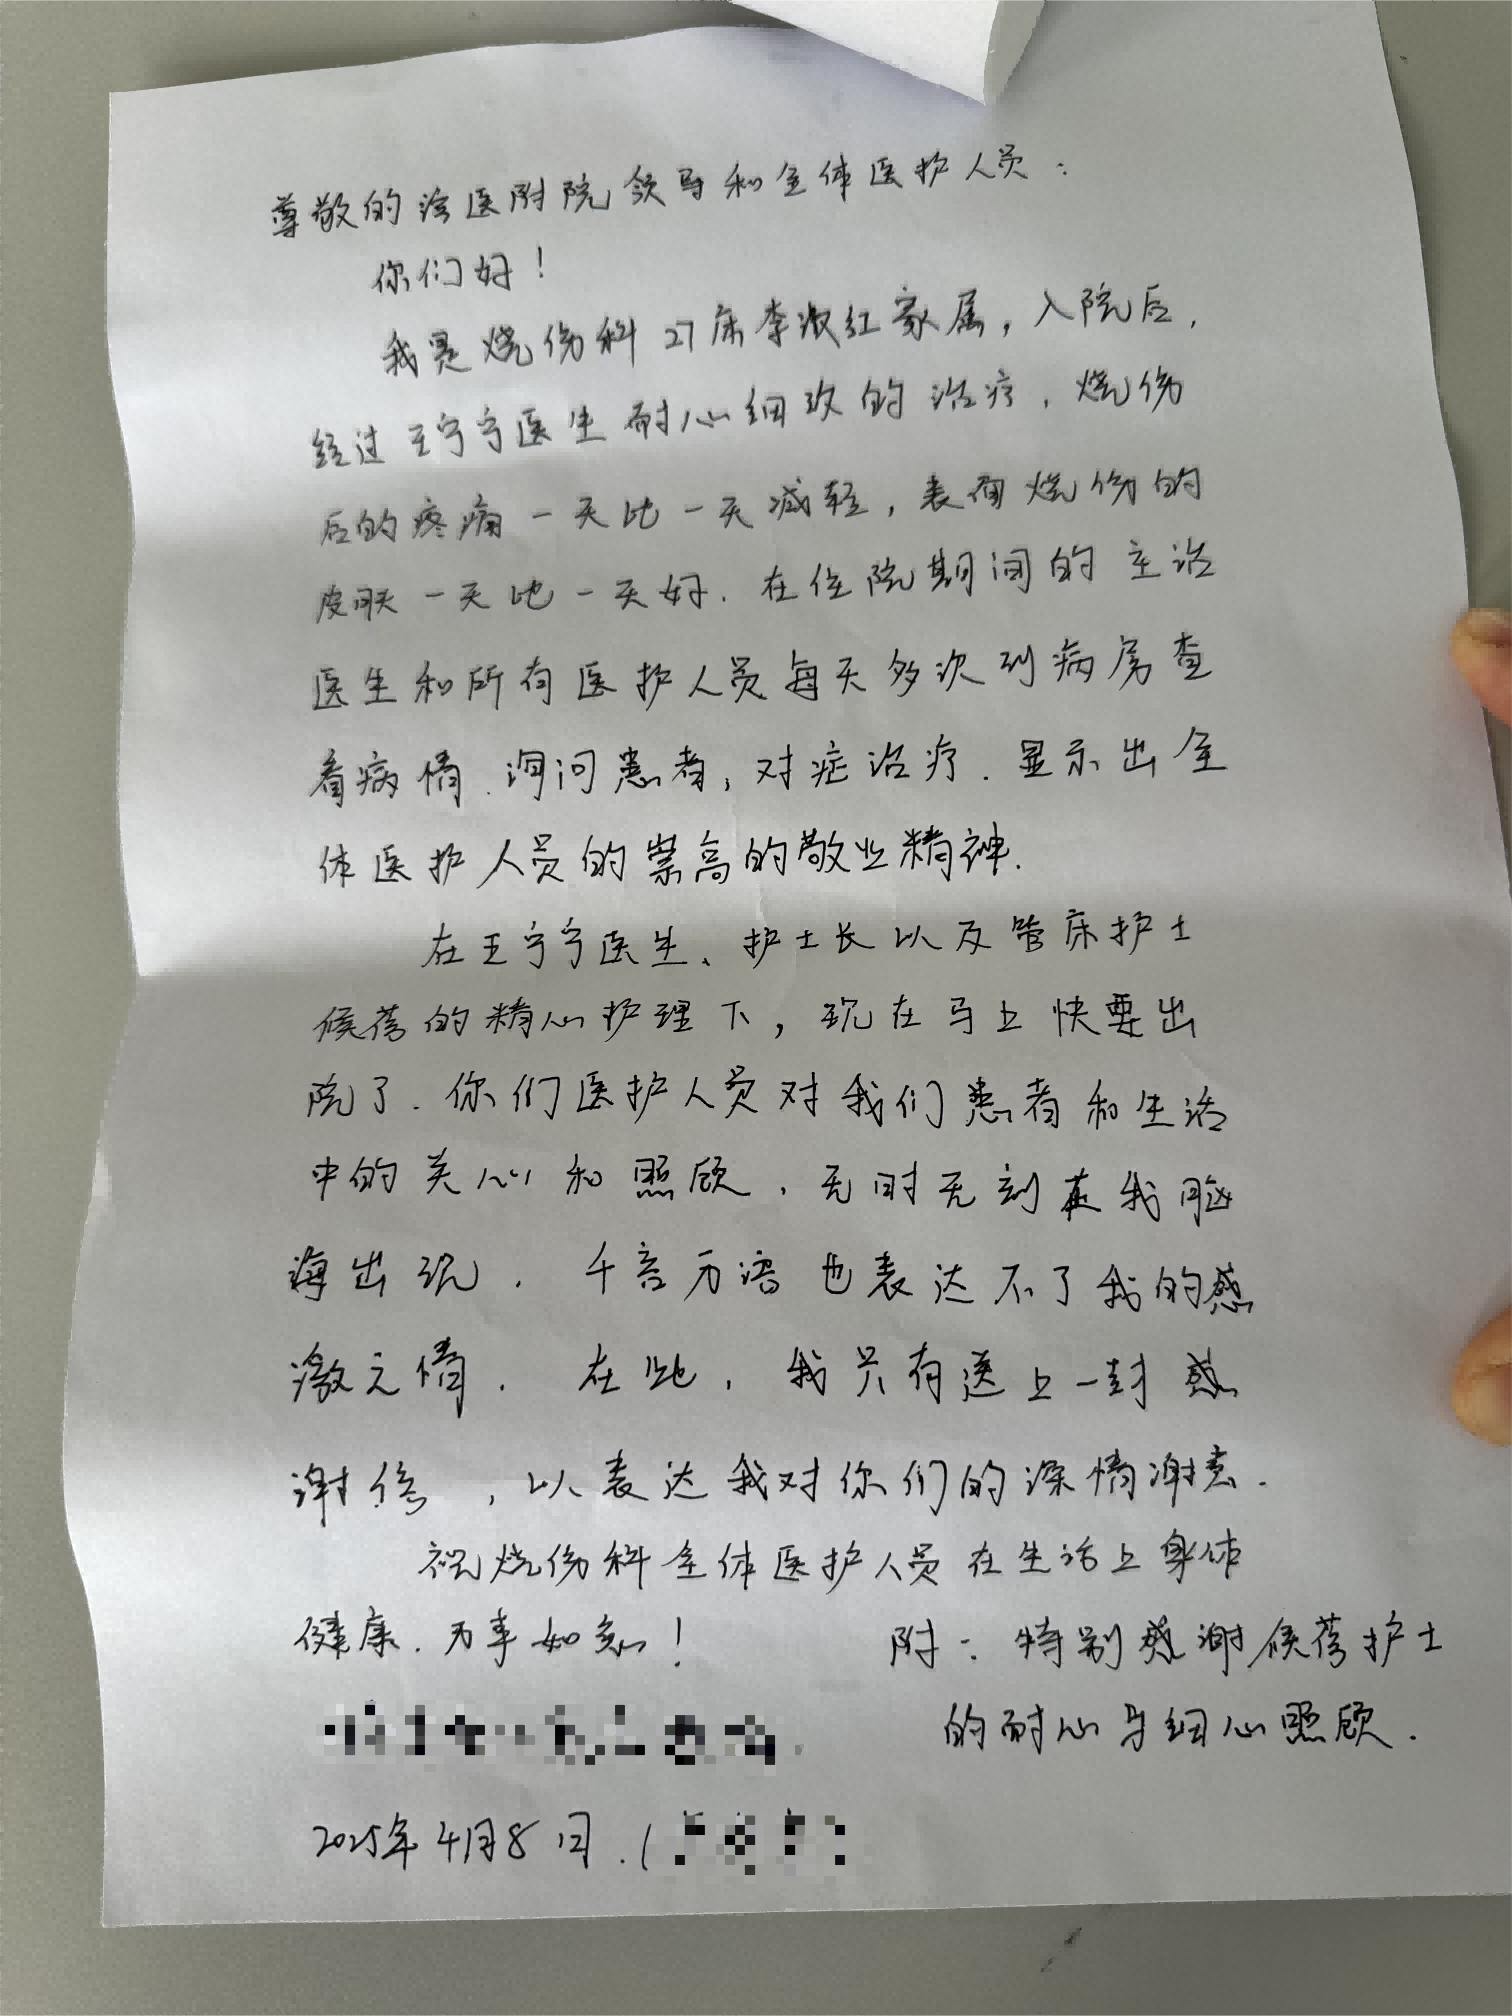 尊敬的治医附院领导和全体医护人员：
你们好！
我是烧伤科27床李淑红家属，入院后，
经过王宁宁医生耐心细致的治疗，烧伤
后的疼痛一天比一天减轻，表面烧伤的
皮肤一天比一天好．在住院期间的主治
医生和所有医护人员每天多次到病房查
看病情．询问患者，对症治疗．显示出全
体医护人员的崇高的敬业精神．
在王宁宁医生、护士长以及管床护士
候蓓的精心护理下，现在马上快要出
院了．你们医护人员对我们患者和生活
中的关心和照顾，无时无刻在我脑
海出现．千言万语也表达不了我的感
激之情．在此，我只有送上一封感
谢信，以表达我对你们的深情谢意．
祝烧伤科全体医护人员在生活上身体
健康．万事如意！
附：特别感谢候蓓护士
的耐心与细心照顾．
2025年4月8日．(